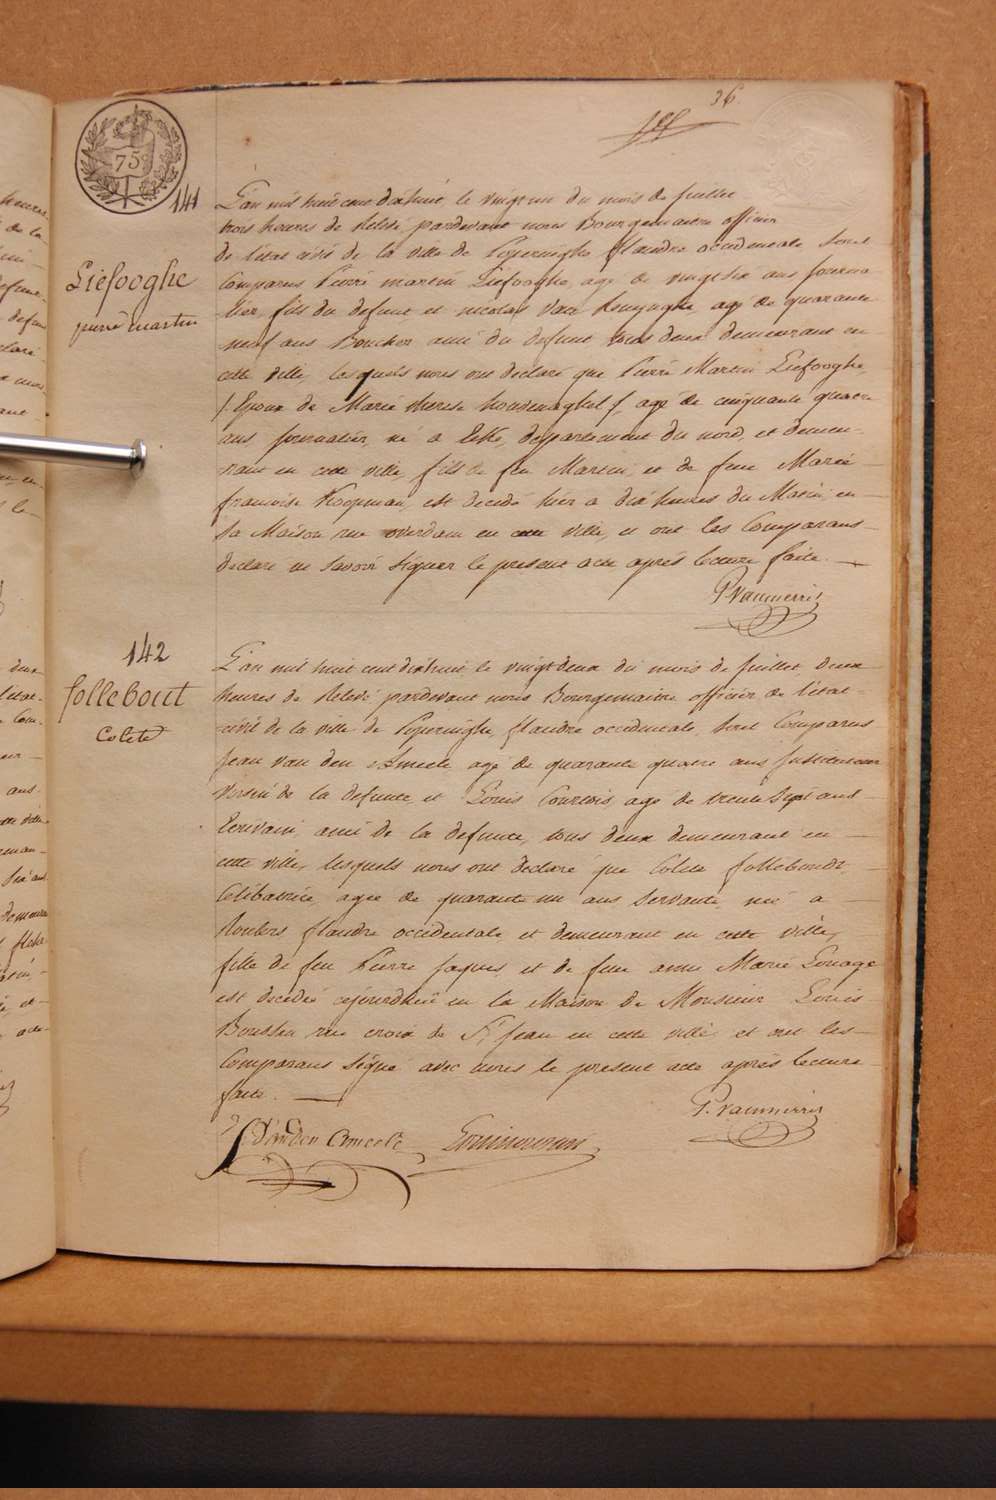 36.
75
141
Liefooghe
pierre martin
L'an mil huit cent dixhuit, le vingt un du mois de juillet
trois heures de relevé, pardevant nous Bourgemaitre officier
de l'état civil de la ville de Poperinghe flandre occidentale sont
Comparus Pierre martin Liefooghe, agé de vingt six ans journa
lier, fils du defunt et nicolas van Renynghe agé de quarante
neuf ans Boucher ami du defunt tous deux demeurant en
cette ville, lesquels nous ont declaré que Pierre Martin Liefooghe,
/. Epoux de Marie therese housenaghel /, agé de cinquante quatre
ans journalier, né a département du nord, et demeu-
rant en cette ville, fils de feu Martin et de feue Marie
françoise Koopman, est decedé hier a dix heures du Matin, en
sa Maison rue overdam en cette ville, et ont les Comparans
declaré ne savoir signer le present acte après lecture faite.
P. Vanmerris
142
follebout
Colete
L'an mil huit cent dixhuit le vingt deux du mois de juillet, deux
heures de relevé pardevant nous Bourgemaitre officier de l'état
civil de la ville de Poperinghe, flandre occidentale, sont Comparus
Jean van den Ameele agé de quarante quatre ans
voisin de la defunte, et Louis Courtois, agé de trente sept ans
Ecrivain, ami de la defunte, tous deux demeurant en
cette ville, lesquels nous ont declaré que Colete follebout,
Celibatrice, agée de quarante un ans Servante, née a
Roulers flandre occidentale et demeurant en cette ville,
fille de feu Pierre Jaques, et de feue anne Marie Louage
est decedée cejourdhui en la Maison de Monsieur Louis
rue croix de St Jean en cette ville et ont les
Comparans signé avec nous le present acte après lecture
faite.
P. Vanmerris
J Vanden Ameele